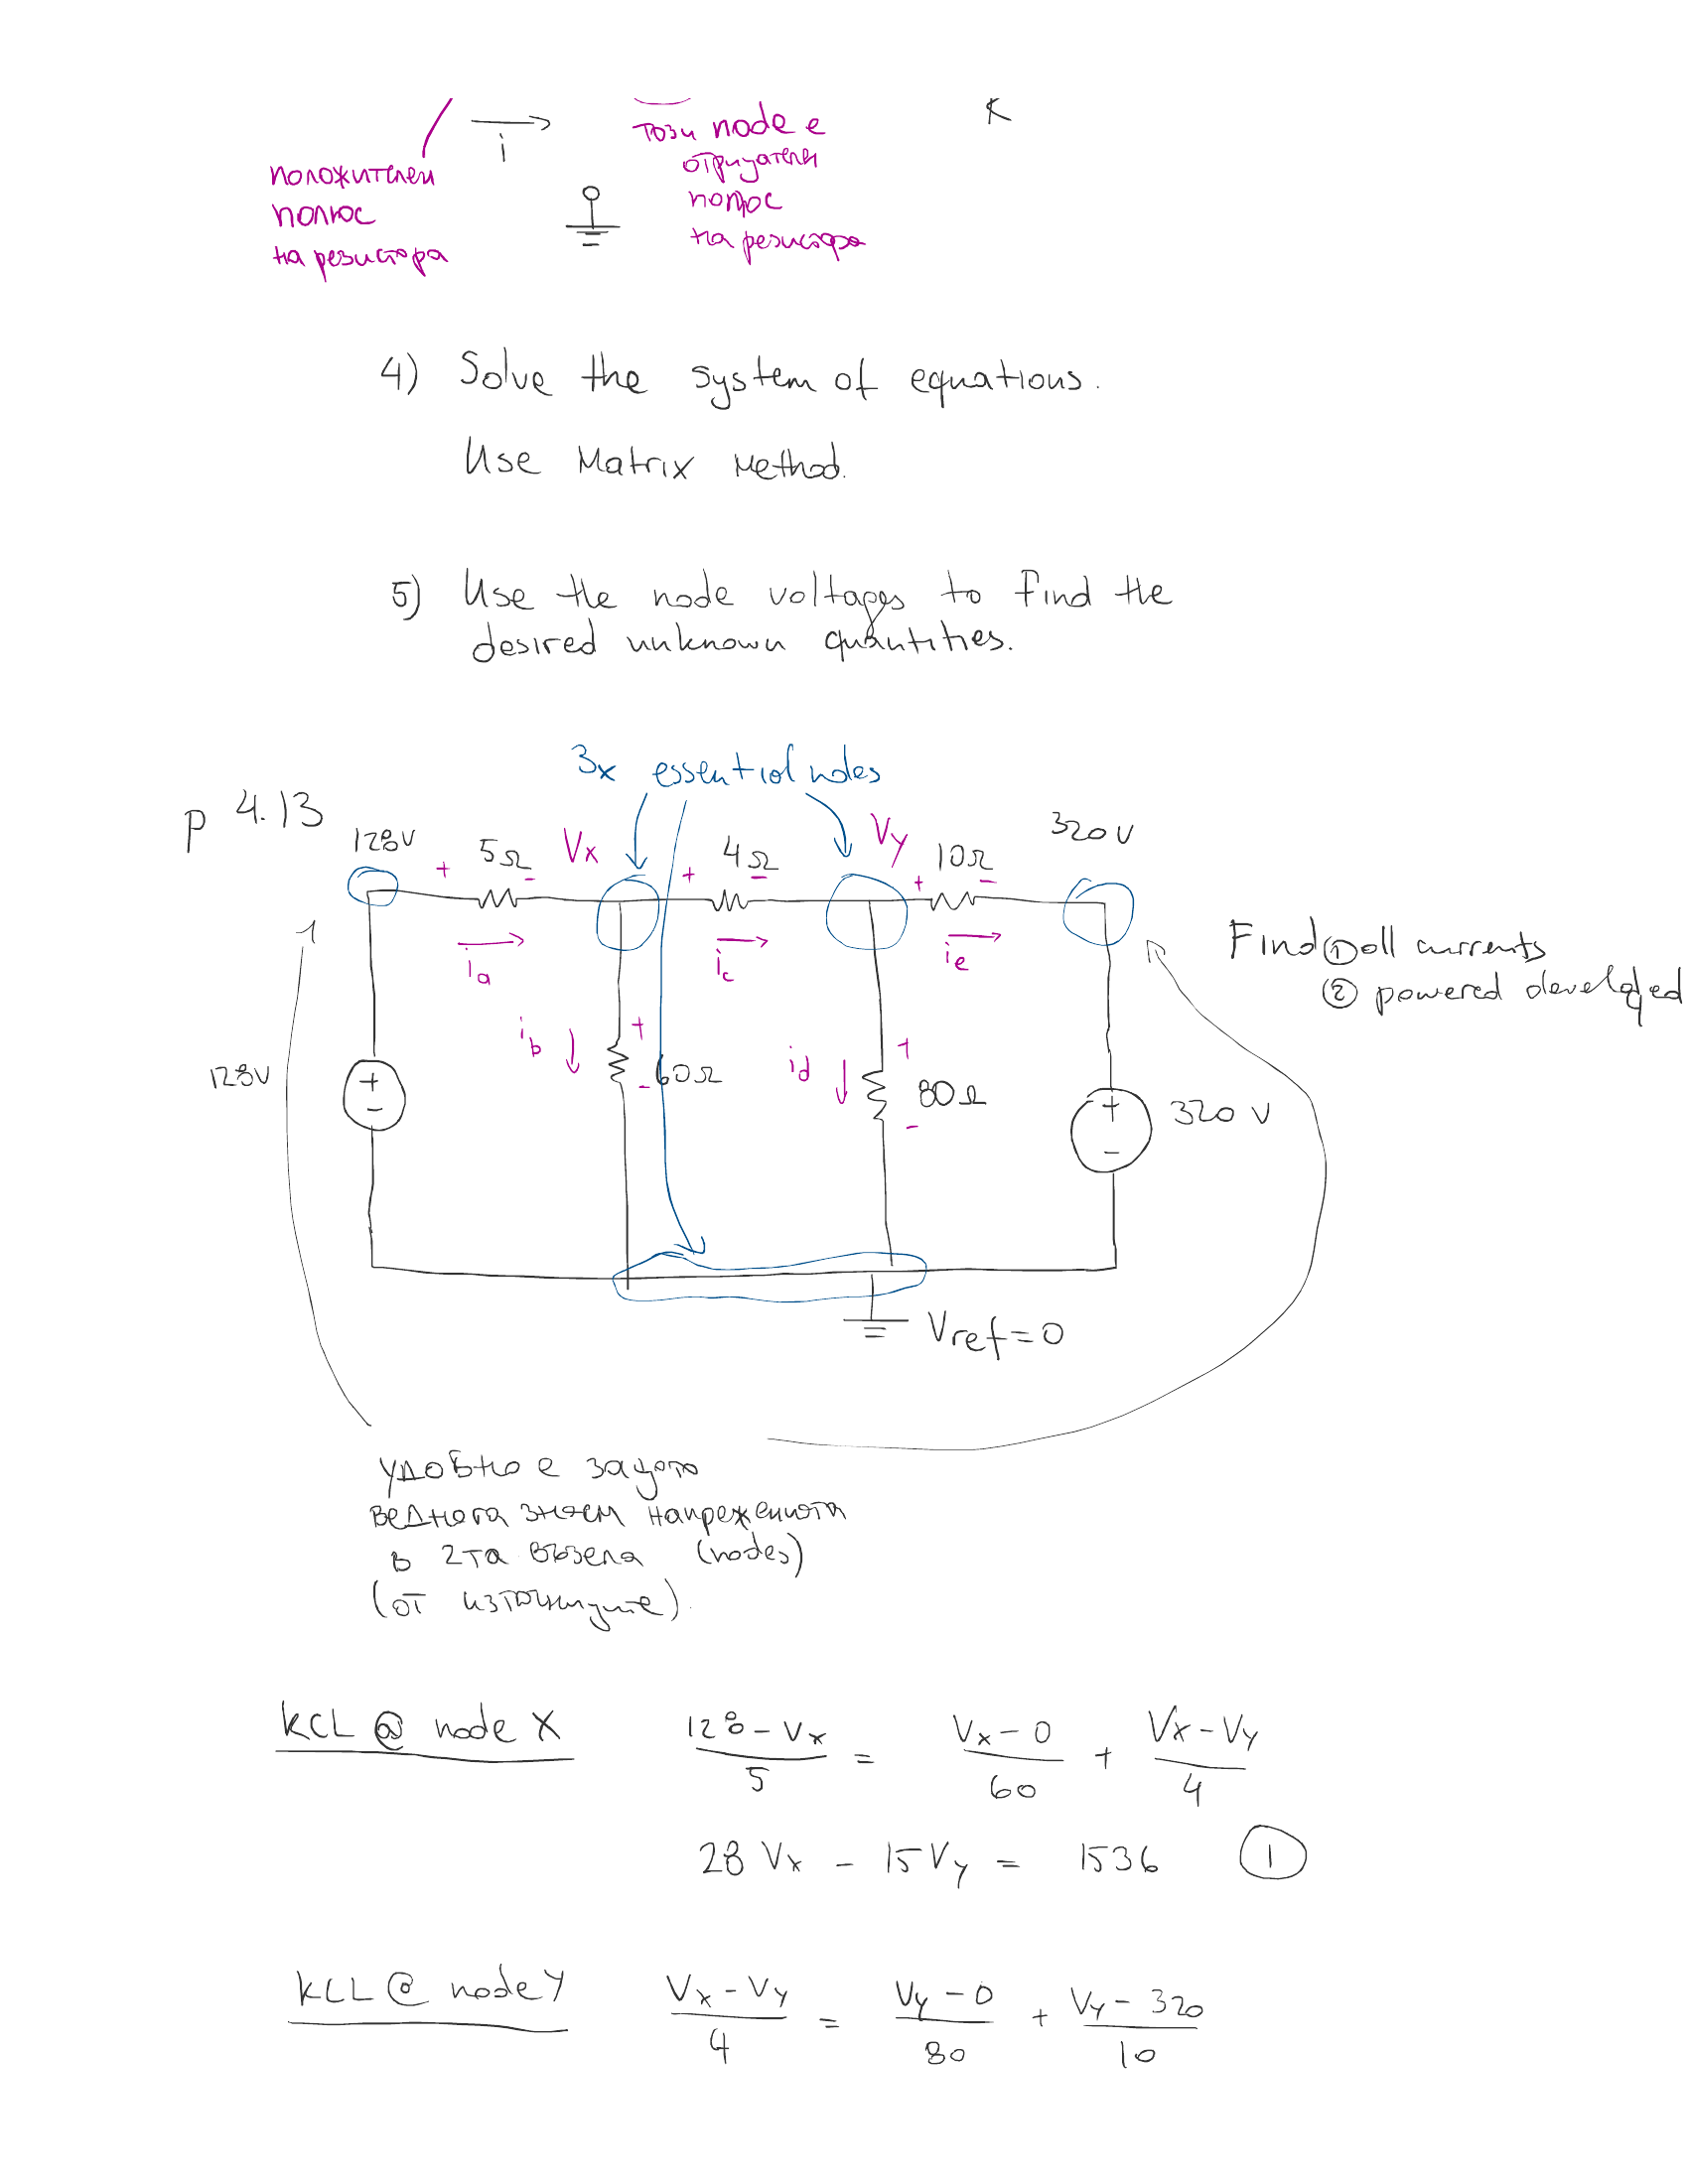 този node е
i
положителен
полюс
на резистора
отрицателен
полюс
на резистора
4) Solve the system of equations.
Use Matrix Method.
5) Use the node voltages to find the
desired unknown quantities.
3x essential nodes
p 4.13
128V
+ 5Ω -
Vx
+ 4Ω -
Vy
+ 10Ω -
320V
ia
ic
ie
Find ① all currents
② powered developed
ib
+
- 60Ω
id
+
80Ω
-
128V
+
-
+
-
320V
Vref=0
удобно е защото
веднага знаем напреженията
в 2та възела (nodes)
(от източниците).
KCL @ node X
128-Vx / 5 = Vx-0 / 60 + Vx-Vy / 4
28Vx - 15Vy = 1536 ①
KCL @ node Y
Vx-Vy / 4 = Vy-0 / 80 + Vy-320 / 10